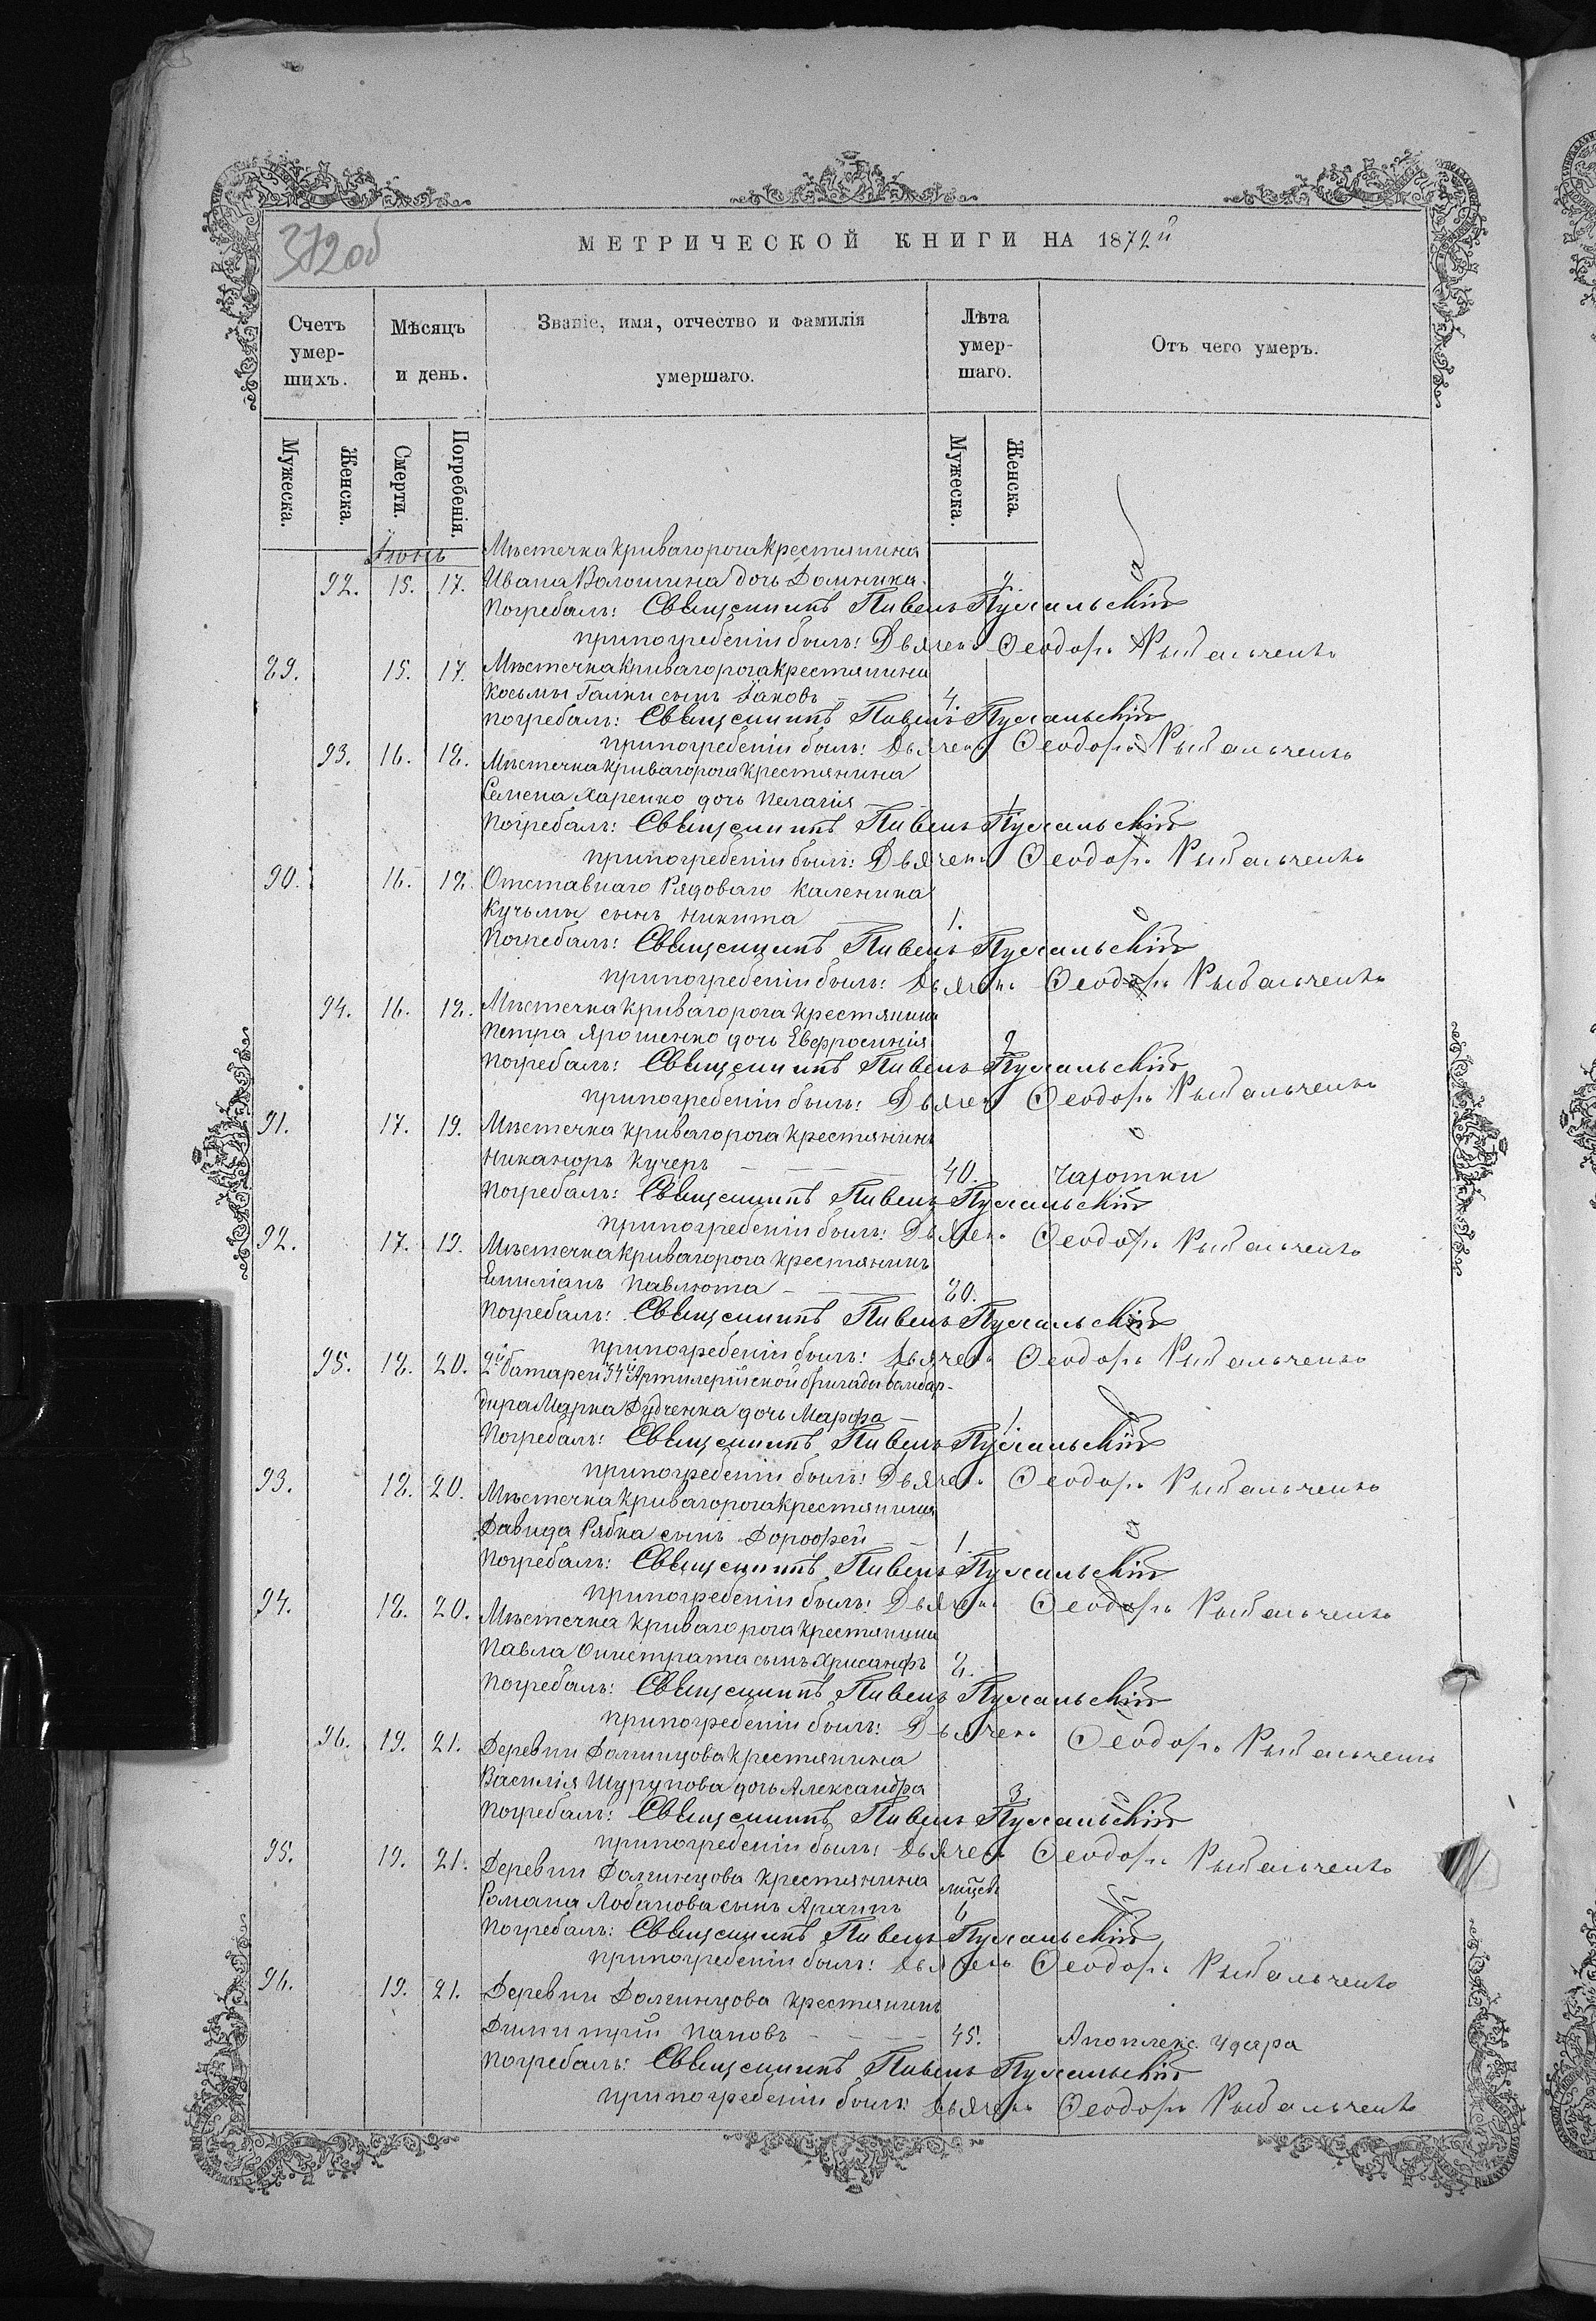 372об
МЕТРИЧЕСКОЙ КНИГИ НА 1872й
Счетъ умер-шихъ.
Мѣсяцъ и день.
Званіе, имя, отчество и фамилія умершаго.
Лѣта умер-шаго.
Отъ чего умеръ.
Мужеска.
Женска.
Смерти.
Погребенія.
Мужеска.
Женска.
Іюнь
Мѣстечка Криваго рога Крестянина
92. 15. 17. Ивана Волошина дочь Домникa. 2.
Погребалъ: Священникъ Павелъ Пухальскій
при погребеніи былъ: Дьячекъ Ѳеодоръ Рыбальченко
89. 15. 17. Мѣстечка Криваго рога Крестянина
Косьмы Галки сынъ Іаковъ 4.
Погребалъ: Священникъ Павелъ Пухальскій
при погребеніи былъ: Дьячекъ Ѳеодоръ Рыбальченко
93. 16. 18. Мѣстечка Криваго рога Крестянина
Семена Харенко дочь Пелагія 1
Погребалъ: Священникъ Павелъ Пухальскій
при погребеніи былъ: Дьячекъ Ѳеодоръ Рыбальченко
90. 16. 18. Отставнаго Рядоваго Каленика
Кучьмы сынъ Никита 1.
Погребалъ: Священникъ Павелъ Пухальскій
при погребеніи былъ: Дьячекъ Ѳеодоръ Рыбальченко
94. 16. 18. Мѣстечка Криваго рога Крестянина
Петра Ярошенко дочь Евфросинія 2
Погребалъ: Священникъ Павелъ Пухальскій
при погребеніи былъ: Дьячекъ Ѳеодоръ Рыбальченко
91. 17. 19. Мѣстечка Криваго рога Крестянинъ
Никаноръ Кучеръ 40. Чахотки
Погребалъ: Священникъ Павелъ Пухальскій
при погребеніи былъ: Дьячекъ Ѳеодоръ Рыбальченко
92. 17. 19. Мѣстечка Криваго рога Крестянинъ
Емиліанъ Павлюта 20.
Погребалъ: Священникъ Павелъ Пухальскій
при погребеніи былъ: Дьячекъ Ѳеодоръ Рыбальченко
95. 18. 20. 2й батареи 34й Артилерійской бригады бомбар-
дира Марка Дудченка дочь Марфа 1
Погребалъ: Священникъ Павелъ Пухальскій
при погребеніи былъ: Дьячекъ Ѳеодоръ Рыбальченко
93. 18. 20. Мѣстечка Криваго рога Крестянина
Давида Рябка сынъ Дороѳей 1.
Погребалъ: Священникъ Павелъ Пухальскій
при погребеніи былъ: Дьячекъ Ѳеодоръ Рыбальченко
94. 18. 20. Мѣстечка Криваго рога Крестянина
Павла Онистрата сынъ Хрисанфъ 2.
Погребалъ: Священникъ Павелъ Пухальскій
при погребеніи былъ: Дьячекъ Ѳеодоръ Рыбальченко
96. 19. 21. Деревни Долгинцова Крестянина
Василія Шурупова дочь Александра 3.
Погребалъ: Священникъ Павелъ Пухальскій
при погребеніи былъ: Дьячекъ Ѳеодоръ Рыбальченко
95. 19. 21. Деревни Долгинцова Крестянина
Романа Лобанова сынъ 6
Погребалъ: Священникъ Павелъ Пухальскій
при погребеніи былъ: Дьячекъ Ѳеодоръ Рыбальченко
96. 19. 21. Деревни Долгинцова Крестянинъ
Димитрій Пановъ 45. Апоплекс. Удара
Погребалъ: Священникъ Павелъ Пухальскій
при погребеніи былъ: Дьячекъ Ѳеодоръ Рыбальченко